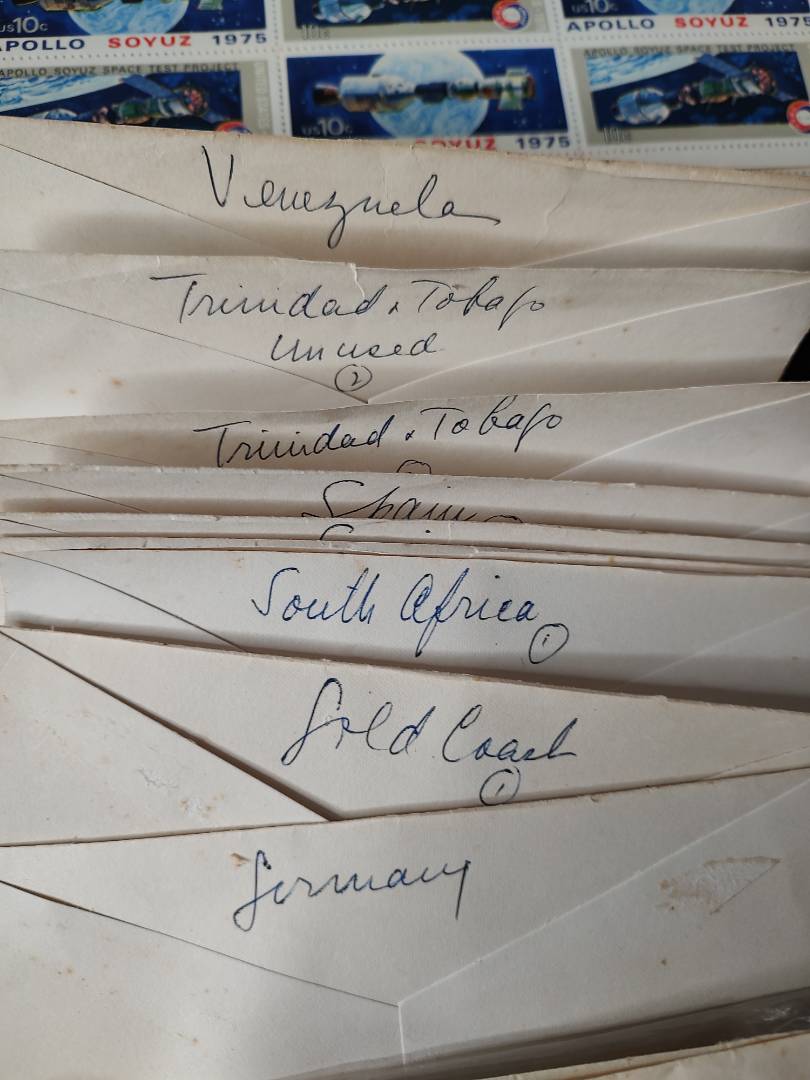 US10c
APOLLO SOYUZ 1975
10c
US10c
APOLLO SOYUZ 1975
APOLLO SOYUZ SPACE TEST PROJECT
US10c
SOYUZ 1975
APOLLO SOYUZ SPACE TEST PROJECT
10c
Venezuela
Trinidad & Tobago
Unused
2
Trinidad & Tobago
Spain
South Africa
1
Gold Coast
1
Germany